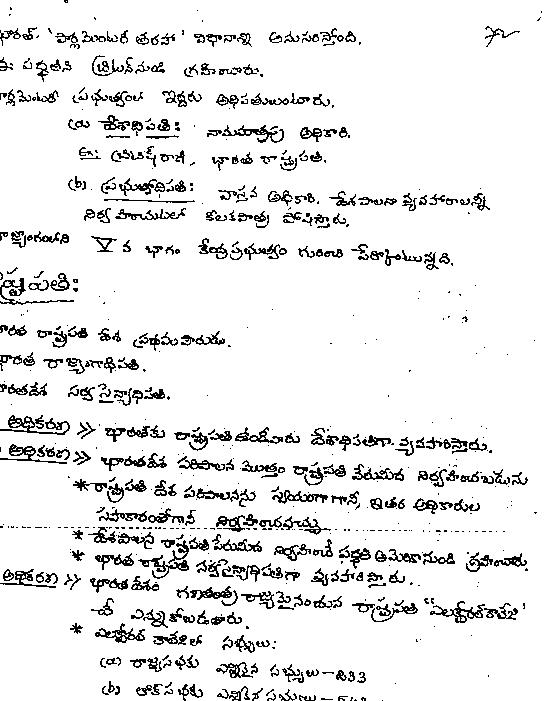 భారత్ 'పార్లమెంటరీ తరహా' విధానాన్ని అనుసరిస్తోంది. 72
ఈ పద్ధతిని బ్రిటన్ నుండి గ్రహించారు.
పార్లమెంటరీ ప్రభుత్వంలో ఇద్దరు అధిపతులుంటారు.
(a) దేశాధిపతి: నామమాత్రపు అధికారి.
Ex: బ్రిటిష్ రాణి, భారత రాష్ట్రపతి.
(b) ప్రభుత్వాధిపతి: వాస్తవ అధికారి. దేశపాలనా వ్యవహారాలన్నీ
నిర్వహించుటలో కీలకపాత్ర పోషిస్తారు.
రాజ్యాంగంలోని V వ భాగం కేంద్ర ప్రభుత్వం గురించి పేర్కొంటున్నది.
రాష్ట్రపతి:
భారత రాష్ట్రపతి దేశ ప్రథమ పౌరుడు.
భారత రాజ్యాంగాధిపతి.
భారతదేశ సర్వ సైన్యాధిపతి.
అధికరణ >> భారత్‌కు రాష్ట్రపతి ఉండేవారు దేశాధిపతిగా వ్యవహరిస్తారు.
అధికరణ >> భారతదేశ పరిపాలన మొత్తం రాష్ట్రపతి పేరుమీద నిర్వహించబడును
* రాష్ట్రపతి దేశ పరిపాలనను స్వయంగా గానీ, ఇతర అధికారుల
సహకారంతో గానీ నిర్వహించవచ్చు
* దేశపాలన రాష్ట్రపతి పేరుమీద నిర్వహించే పద్ధతి అమెరికా నుండి గ్రహించారు.
* భారత రాష్ట్రపతి సర్వసైన్యాధిపతిగా వ్యవహరిస్తారు.
అధికరణ >> భారతదేశం గణతంత్ర రాజ్యమైనందున రాష్ట్రపతి "ఎలక్టోరల్ కాలేజి"
చే ఎన్నుకోబడతారు.
* ఎలక్టోరల్ కాలేజీలో సభ్యులు:
(a) రాజ్యసభకు ఎన్నికైన సభ్యులు - 233
(b) లోక్ సభకు ఎన్నికైన సభ్యులు - 543